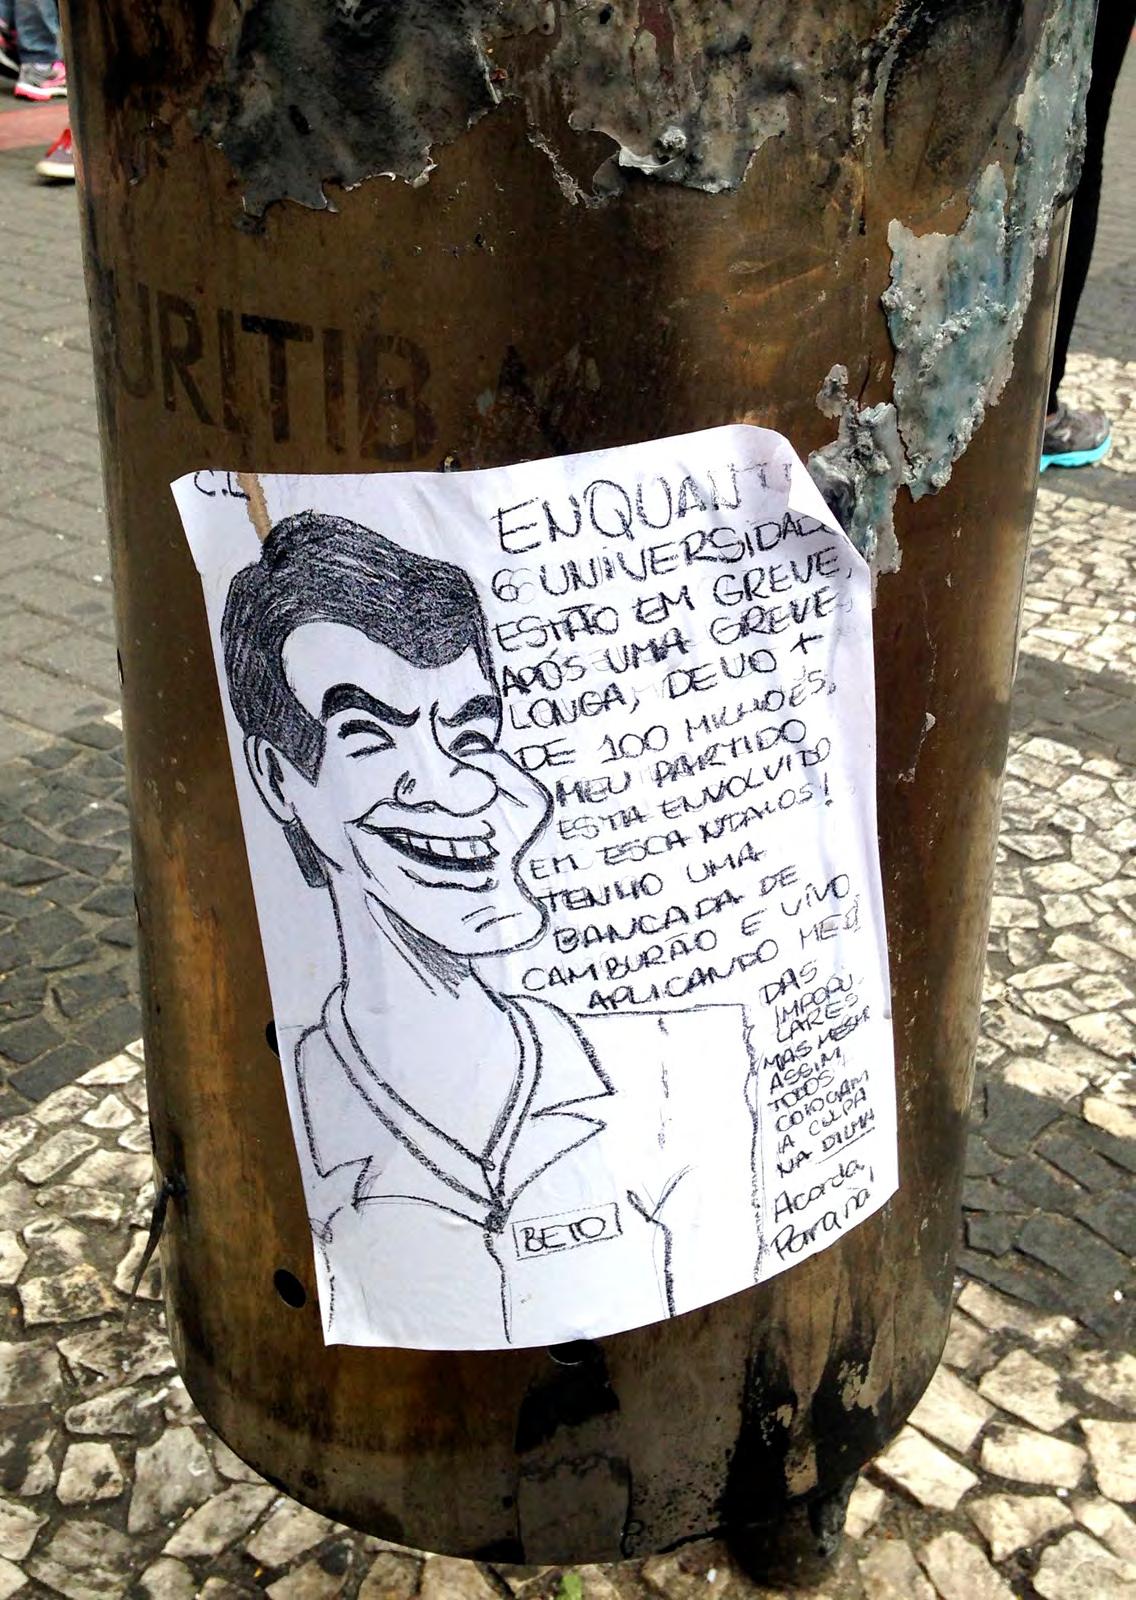 URITIBA
C.L
ENQUANT
6 UNIVERSIDAD
ESTÃO EM GREVE,
APÓS UMA GREVE
LONGA, DEVO +
DE 100 MILHÕES,
MEU PARTIDO
ESTÁ ENVOLVIDO
EM ESCANDALOS!
TENHO UMA
BANCADA DE
CAMBURÃO E VIVO
APLICANDO MEDI
DAS
IMPOPU-
LARES
MAS MESM
ASSIM,
TODOS
COLOCAM
A CULPA
NA DILMA
Acorda,
Paraná!
BETO